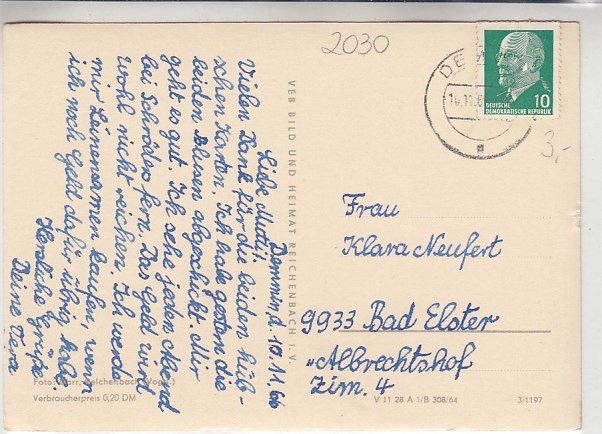 2030
DEUTSCHE
DEMOKRATISCHE REPUBLIK
10
3,-
VEB BILD UND HEIMAT REICHENBACH I. V.
Demmin, d. 10.11.66
Liebe Mutti!
Vielen Dank für die beiden hüb-
schen Karten. Ich habe gestern die
beiden Blusen abgeschickt. Mir
geht es gut. Ich sehe jeden Abend
bei Schröders fern. Das Geld wird
wohl nicht reichen. Ich werde
mir Leinensamen kaufen, wenn
ich noch Geld dafür übrig habe.
Herzliche Grüße
Deine Vera
Frau
Klara Neufert
9933 Bad Elster
"Albrechtshof
Zim. 4
Foto: Darr, Reichenbach (Vogtl.)
Verbraucherpreis 0,20 DM
V 11 28 A 1/B 308/64
3/1197